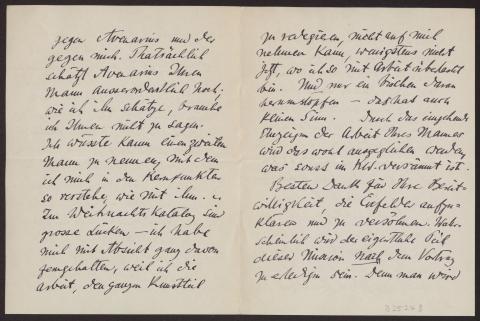 gegen Avenarius und der
gegen mich. Thatsächlich
schätzt Avenarius Ihren
Mann ausserordentlich hoch.
wie ich ihn schätze, brauche
ich Ihnen nicht zu sagen.
Ich wüsste kaum einen zweiten
Mann zu nennen, mit dem
ich mich in den Kernpunkten
so verstehe, wie mit ihm.
Im Weihnachtskatalog sind
grosse Lücken — ich habe
mich mit Absicht ganz davon
ferngehalten, weil ich die
Arbeit, den ganzen Kunstteil
zu redegieren, nicht auf mich
nehmen kann, wenigstens nicht
jetzt, wo ich so mit Arbeit überlastet
bin. Und nur ein bischen daran
herumstopfen — das hat auch
keinen Sinn. Durch das eingehende
der Arbeit Ihres Mannes
wird das wohl ausgeglichen werden,
was sonst im Kw. versäumt ist.
Besten Dank für Ihre Bereit-
willigkeit, die aufzu-
klären und zu versöhnen. Wahr-
scheinlich wird der eigentliche Teil
dieser Mission nach dem Vortrag
zu erledigen sein. Denn man wird